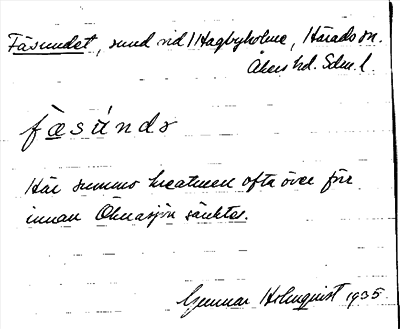 Fäsundet, sund vid Hagbyholme, Härads sn.
Åkers hd. Sdm. l.
fæsúndə
Här summo kreaturen ofta över före
innan Öknasjön sänktes.
Gunnar Holmquist 1935